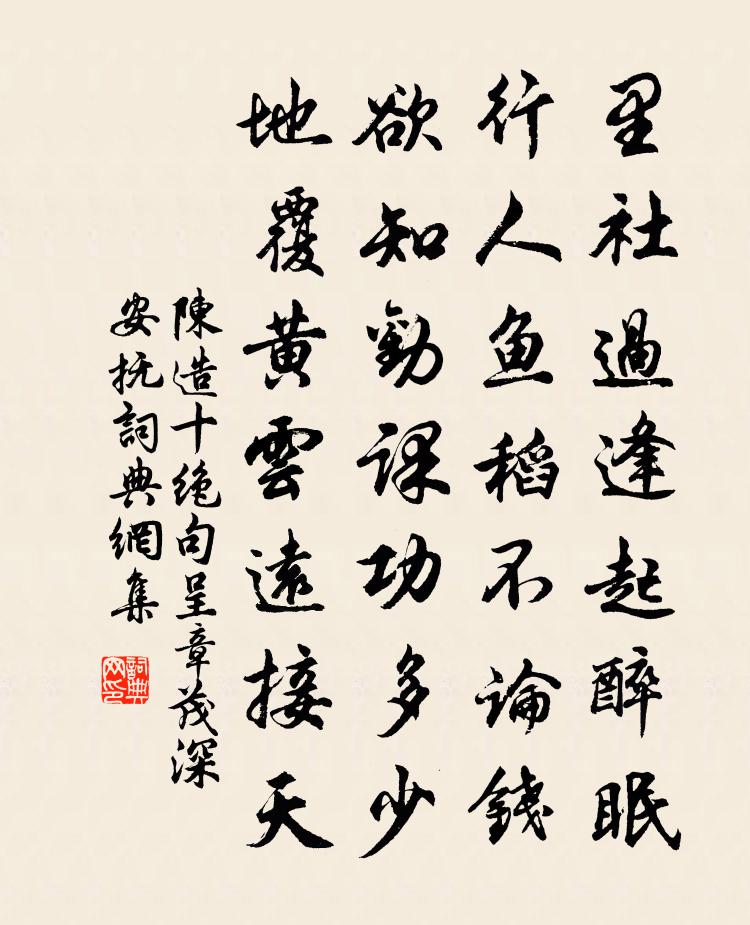 里社過逢起醉眠
行人魚稻不論錢
欲知勸課功多少
地覆黃雲遠接天
陳造十絶句呈章茂深
安抚詞典網集
詞典网